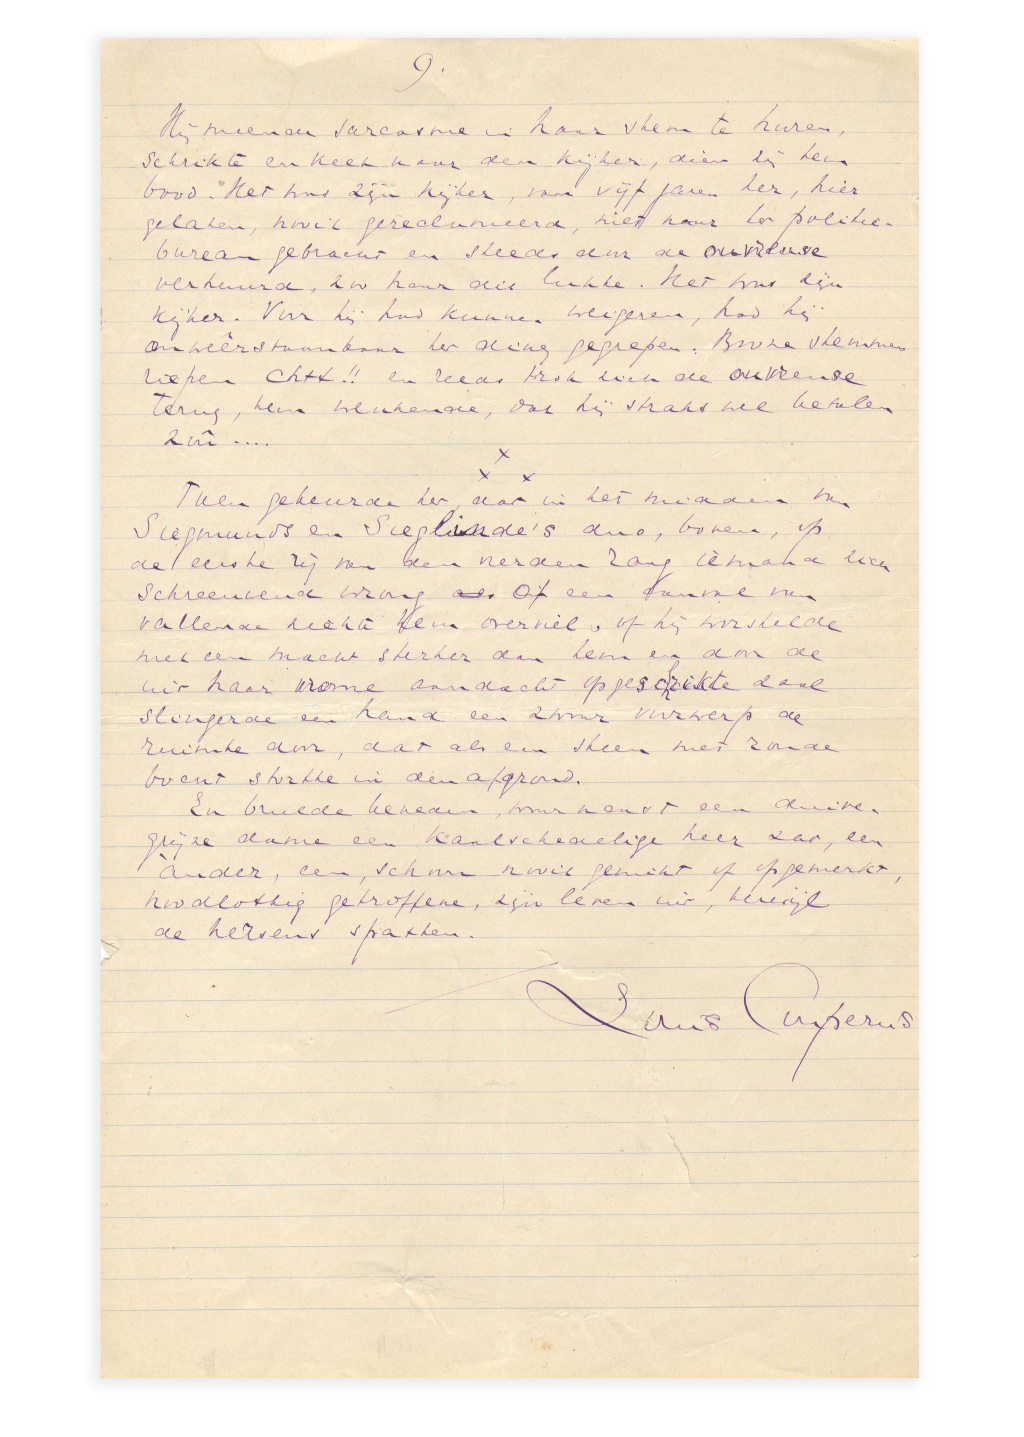 9.
Hij meende sarcasme in haar stem te huren,
schrikte en keek naar den kijker, dien zij hem
bood. Het was zijn kijker, van vijf jaren her, hier
gelaten, nooit gereclameerd, niet naar het politie-
bureau gebracht en steeds door de ouvreuse
verhuurd, zoo haar dit lukte. Het was zijn
kijker. Voor hij had kunnen weigeren, had hij
onweêrstaanbaar het ding gegrepen. Booze stemmen
riepen Chtt!! en reeds trok zich de ouvreuse
terug, hem wenkende, dat hij straks wel betalen
zoû ....
x
x x
Toen gebeurde het, dat in het midden van
Siegmunds en Sieglinde's duo, boven, op
de eerste rij van den vierden rang iemand zich
schreeuwend wrong als of een aanval van
vallende ziekte hem overviel, of hij worstelde
met een macht sterker dan hem en door de
uit haar vrome aandacht opgeschrikte zaal
slingerde een hand een zwaar voorwerp de
ruimte door, dat als een steen met ronde
bocht stortte in den afgrond.
En brulde beneden, waar naast een duive-
grijze dame een kaalschedelige heer zat, een
ànder, een, schoon nooit gemikt of opgemerkt,
noodlottig getroffene, zijn leven uit, terwijl
de hersens spatten.
Louis Couperus